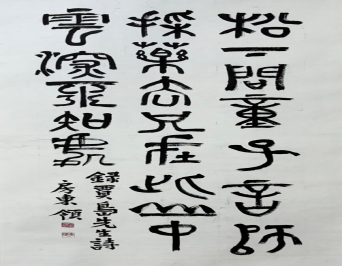 松下問童子言師
採藥去只在此山中
雲深不知處
錄賈島先生詩
房東領